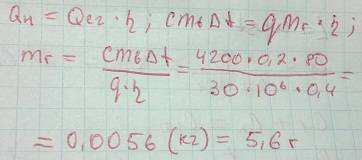 Qп = Qсг · η; cmвΔt = qmг · η;
mг = cmвΔt / q·η = 4200·0,2·80 / 30·10⁶·0,4 =
= 0,0056 (кг) = 5,6г